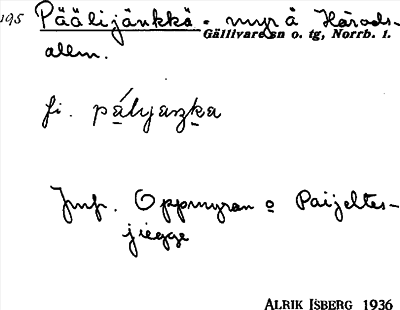 195 Päälijänkkä - myr å Härads-
Gällivare sn o. tg, Norrb. l.
allm.
fi. pályaszka
Jmf. Oppmyran o Paijeltes-
jiegge
ALRIK ISBERG 1936